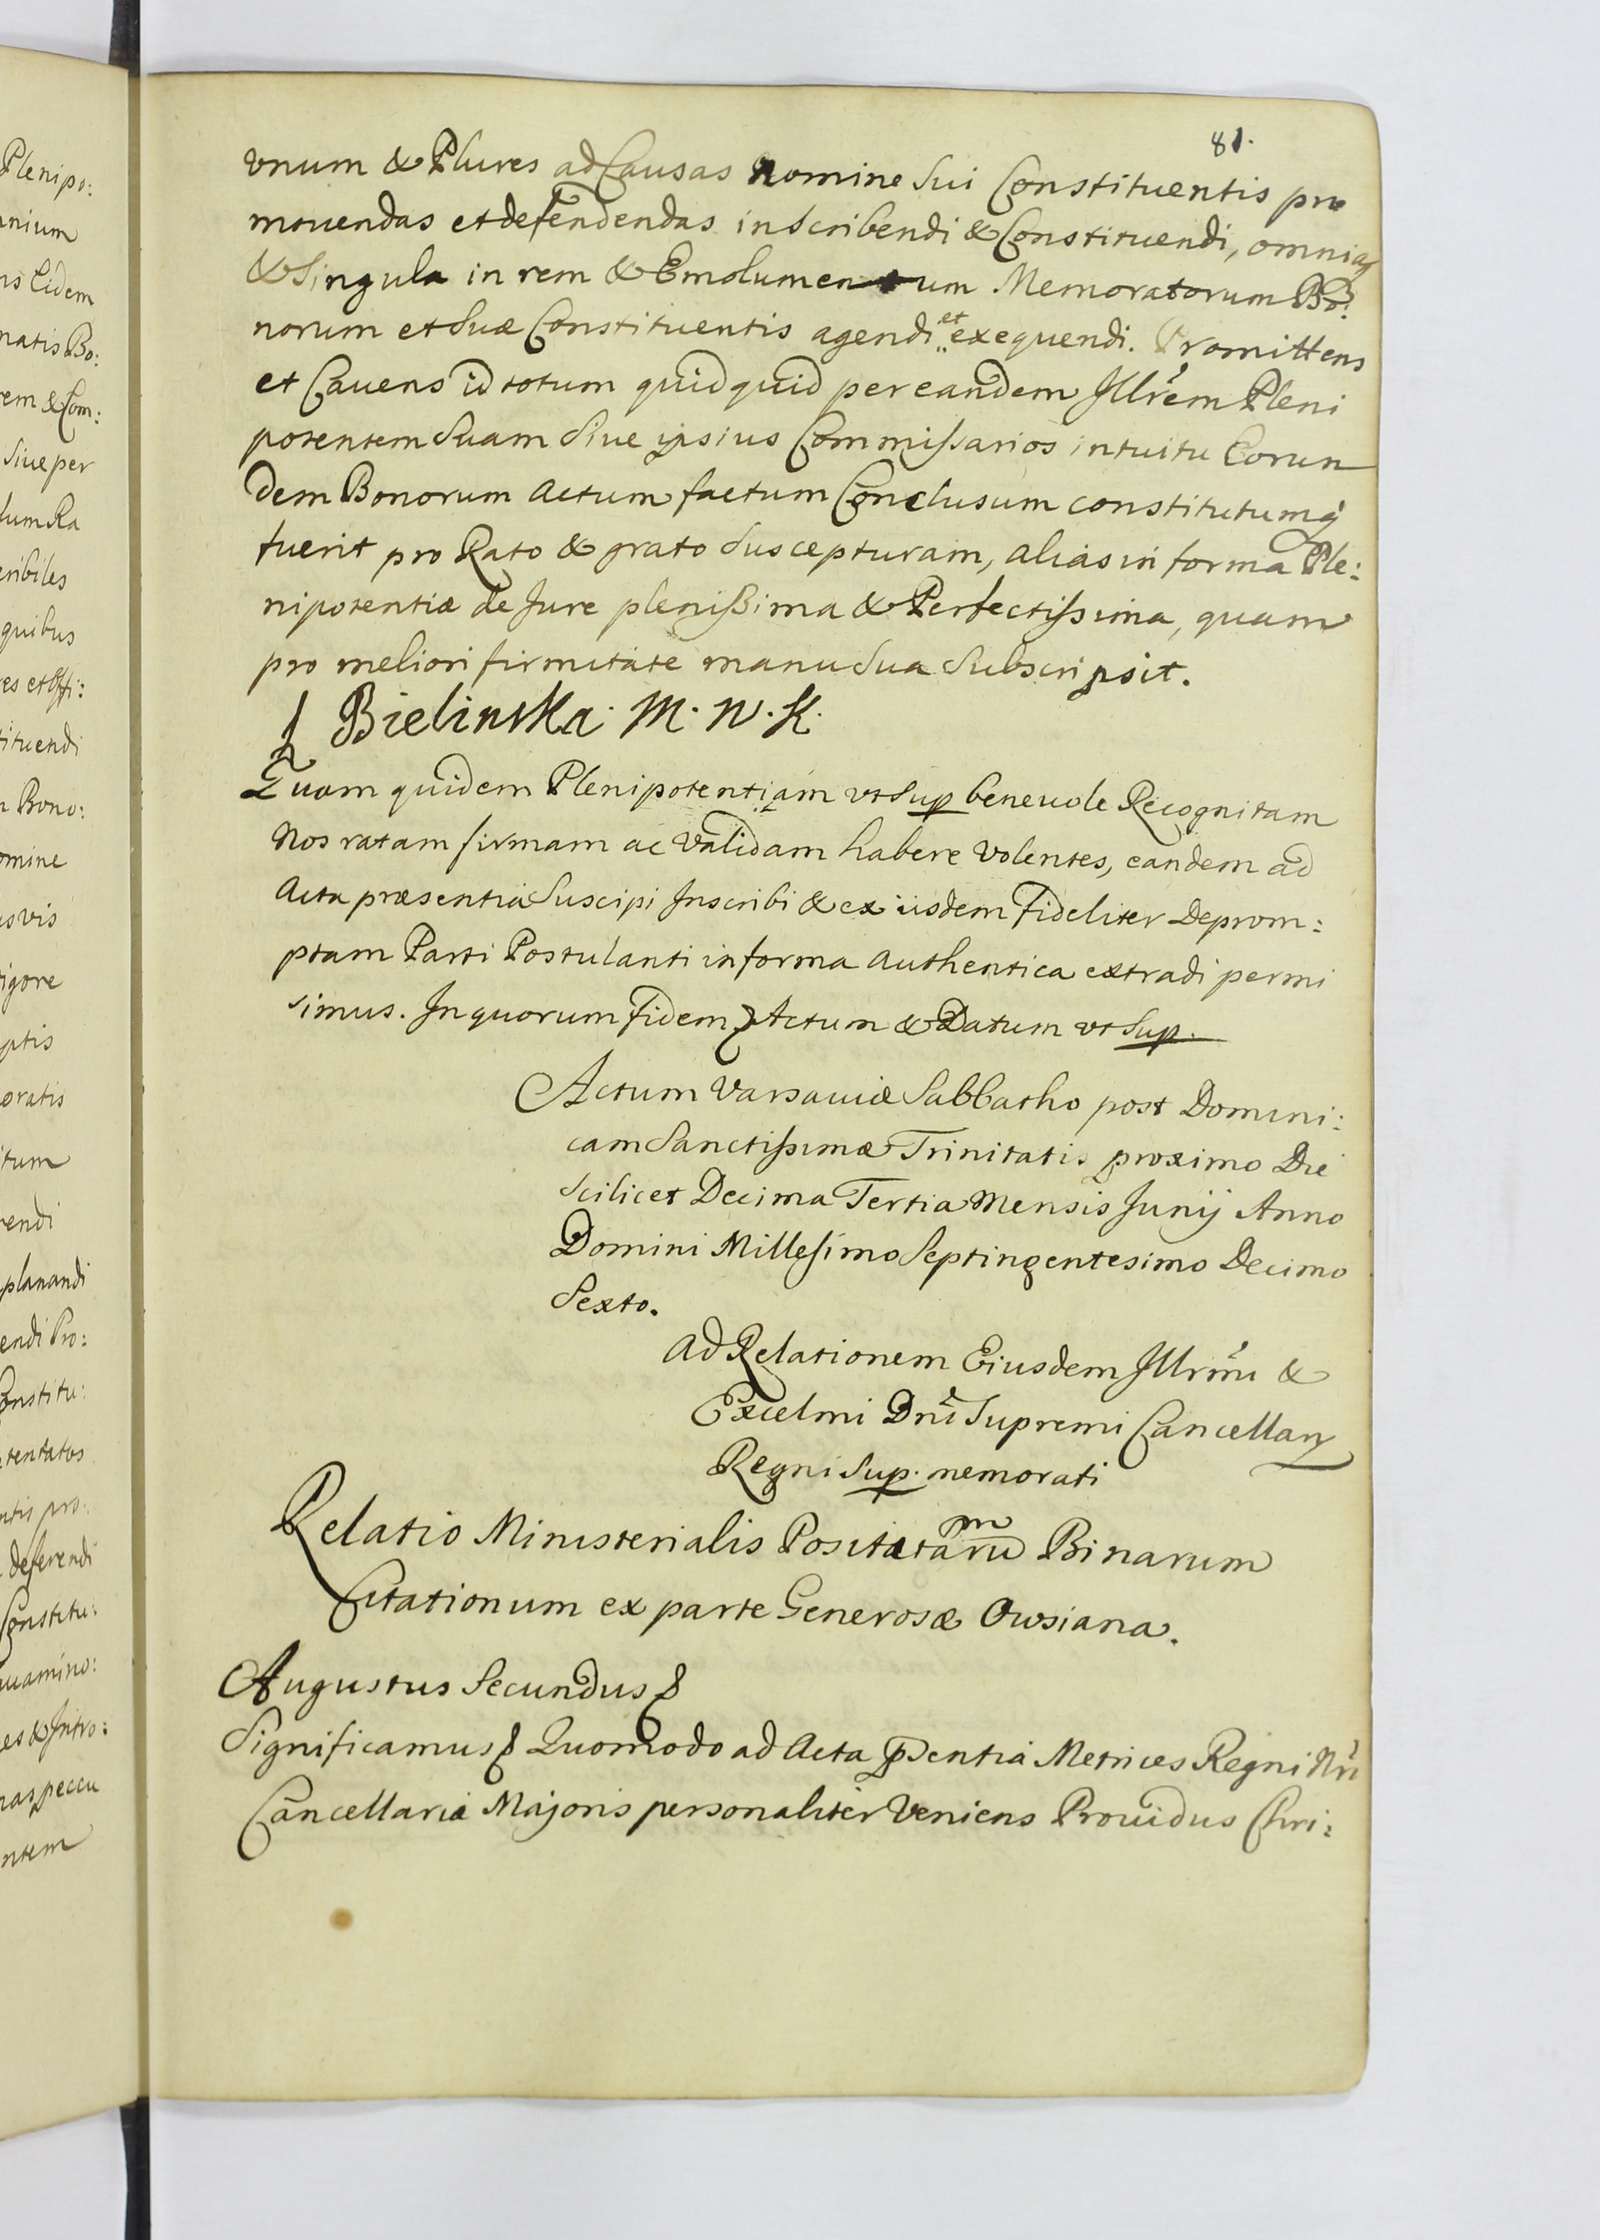 81.
vnum & Plures ad Causas nomine Sui Constituentis pro
mouendas et defendendas inscribendi & Constituendi, omniaq
& Singula in rem & Emolumentum Memoratorum Bo:
norum et Suæ Constituentis agendi et exequendi. Promittens
et Cauens id totum quidquid per eandem Illrem Pleni
potentem Suam Siue ipsius Commissarios intuitu Eorun
dem Bonorum actum factum Conclusum constitutumq
fuerit pro Rato & grato Suscepturam, alias in forma Ple:
nipotentiæ de Jure plenissima & Perfectissima, quam
pro meliori firmitate manu Sua Subscripsit.
Bielinska. M. W. K.
Quam quidem Plenipotentiam vt Sup beneuole Recognitam
Nos ratam firmam ac validam habere volentes, eandem ad
Acta præsentia Suscipi Inscribi & ex iisdem fideliter Deprom:
ptam Parti Postulanti in forma authentica extradi permi
simus. In quorum fidem Actum & Datum vt Sup.
Actum Varsauiæ Sabbatho post Domini:
cam Sanctissimæ Trinitatis proximo Die
Scilicet Decima Tertia Mensis Junij Anno
Domini Millesimo Septingentesimo Decimo
Sexto.
Ad Relationem Eiusdem Illrmi &
Excelmi Dni Supremi Cancellarij
Regni Sup. memorati
Relatio Ministerialis Positarum Binarum
Citationum ex parte Generosæ Owsiana.
Augustus Secundus
Significamus Quomodo ad Acta pSentia Metrices Regni Nri
Cancellariæ Majoris personaliter Veniens Prouidus Chri:
Plenipo:
nium
ns Eidem
natis Bo:
rem & Com:
Siue per
lum Ra
eribiles
quibus
res et Offi:
tituendi
n Bono:
omine
usvis
igore
ptis
oratis
itum
rendi
planandi
endi Pro:
Constitu:
tentatos
ntis pro:
deferendi
Constitu:
uamino:
es & Intro:
naspeccu
ntem